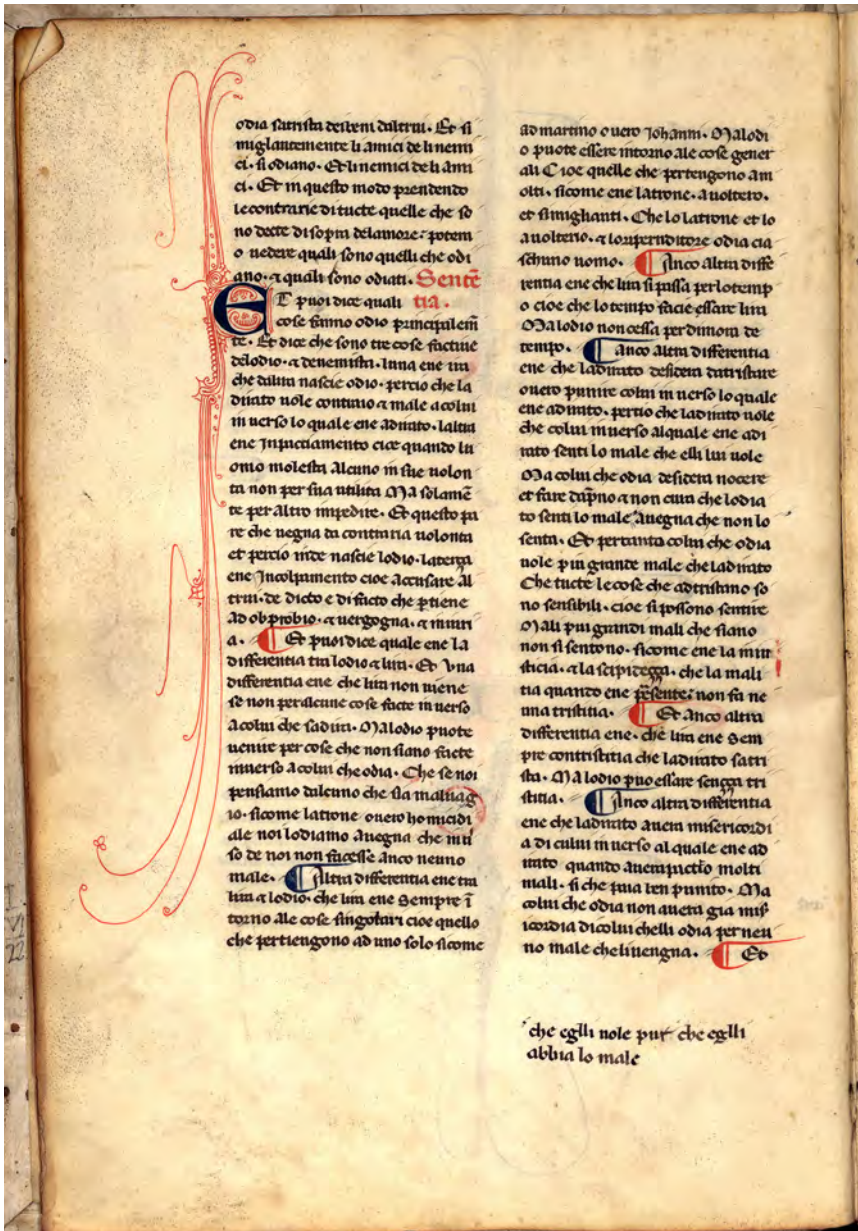 odia satrista deltem daltrui. Et si
miglantemente li amici de li nemi
ci. si odiano. Et li nemici de li ami
ci. Et in questo modo prendendo
le contrarie di tucte quelle che so
no decte di sopra delamore: potem
o uedere quali sono quelli che odi
ano. et quali sono odiati. Sentẽ
ET puoi dice quali tia.
cose fanno odio principalem̃
te. Et dice che sono tre cose factiue
delodio. et denemista. luna ene ira
che dalira nascie odio. percio che la
dirato uole contraio et male a colui
in uerso lo quale ene adirato. laltra
ene Inpacciamento cioe quando lu
omo molesta Alcuno in sue uolon
ta non per sua utilita Ma solamẽ
te per altro impedire. Et questo pa
re che uegna da contraria uolonta
et percio inde nascie lodio. laterça
ene Incolpamento cioe accusare Al
trui. de dicto e di facto che ptiene
ad obprobio. et uergogna. et iniuri
a. ¶ Et puoi dice quale ene la
differentia tra lodio et lira. Et Vna
differentia ene che lira non uiene
se non per alcune cose facte in uerso
a colui che sadira. Ma lodio puote
uenire per cose che non siano facte
inuerso a colui che odia. Che se noi
pensiamo dalcuno che sia maluag
io. sicome latrone ouero homicidi
ale noi lodiamo auegna che inu
so de noi non facesse anco neuno
male. ¶ Altra differentia ene tra
lira et lodio. che lira ene sempre ĩ
torno ale cose singolari cioe quello
che pertiengono ad uno solo sicome
ad martino o uero Iohanni. Ma lodi
o puote essere intorno ale cose gener
ali Cioe quelle che pertengono am
olti. sicome ene latrone. auoltero.
et simiglianti. Che lo latrone et lo
auolterio. et lorapernditore odia cia
schuno uomo. ¶ Anco altra diffe
rentia ene che lira si passa per lotemp
o cioe che lo tempo facie essare lira
Ma lodio non cessa per dimora de
tempo. ¶ Anco altra differentia
ene che ladirato desidera datristare
ouero punire colui in uerso lo quale
ene adirato. percio che ladirato uole
che colui inuerso alquale ene adi
rato senti lo male che elli lui uole
Ma colui che odia desidera nocere
et fare dap̃no et non cura che lodia
to senti lo male Auegna che non lo
senta. Et pertanta colui che odia
uole piu grande male che ladirato
Che tucte le cose che adtristano so
no sensibili. cioe si possono sentire
Ma li piu grandi mali che siano
non si sentono. sicome ene la iniu
sticia. et la scipideçça. che la mali
tia quando ene p̃sente: non fa ne
una tristitia. ¶ Et Anco altra
differentia ene. che lira ene Sem
pre contristitia che ladirato satri
sta. Ma lodio puo essare sença tri
stitia. ¶ Anco altra differentia
ene che ladirato auera misericordi
a di cului in uerso al quale ene ad
irato quando auera molti
mali. si che paia ben punito. Ma
colui che odia non auera gia mis̃
icordia dicolui chelli odia per neu
no male che li uengna. ¶ Et
che eglli uole pur che eglli
abbia lo male